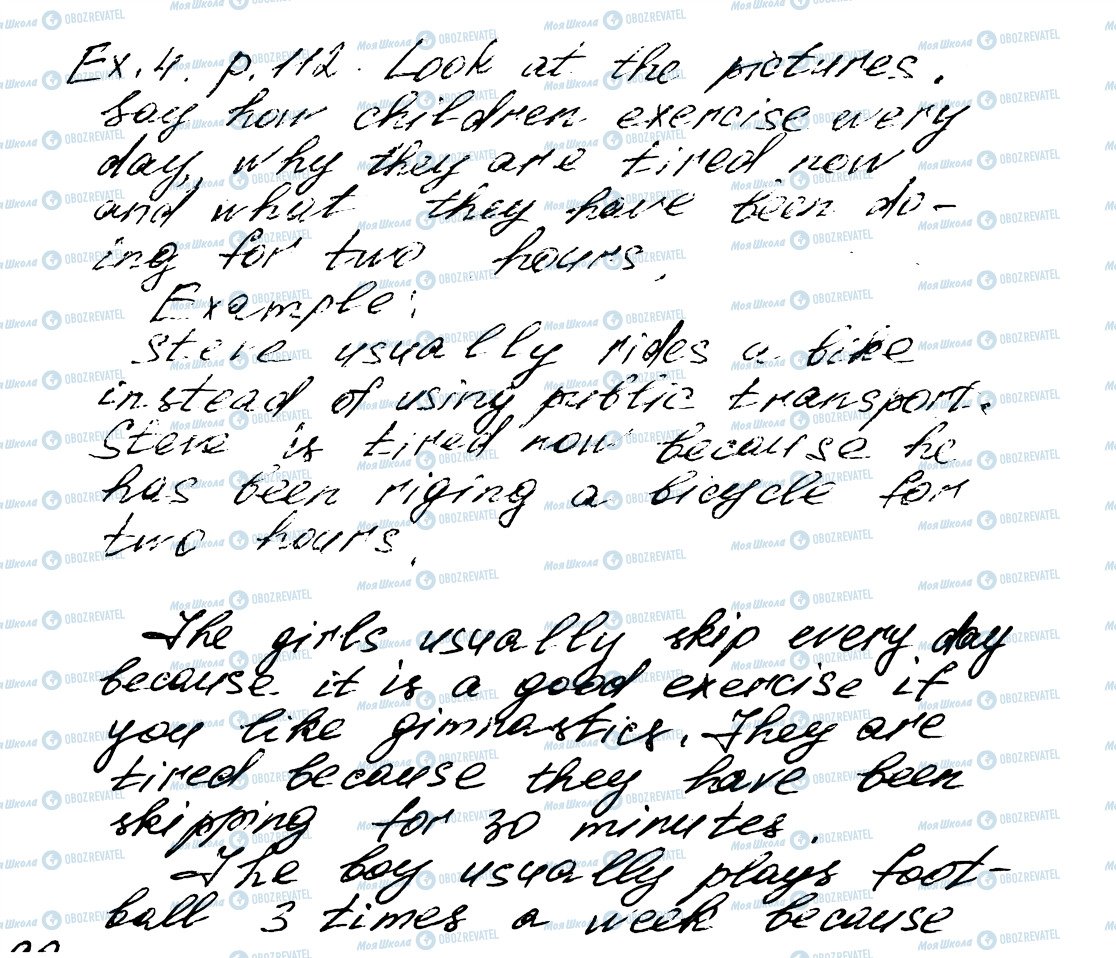 Ex. 4. p. 112. Look at the pictures.
Say how children exercise every
day, why they are tired now
and what they have been do-
ing for two hours.
Example:
Steve usually rides a bike
instead of using public transport.
Steve is tired now because he
has been riging a bicycle for
two hours.
The girls usually skip every day
because it is a good exercise if
you like gimnastics. They are
tired because they have been
skipping for 30 minutes.
The boy usually plays foot-
ball 3 times a week because